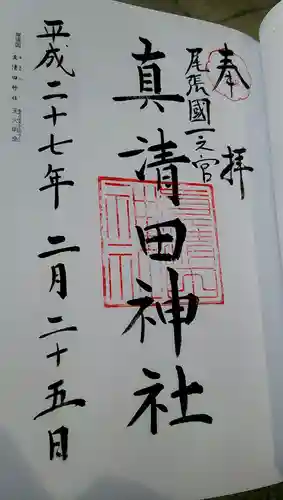 奉拝
尾張國一之宮
真清田神社
平成二十七年二月二十五日